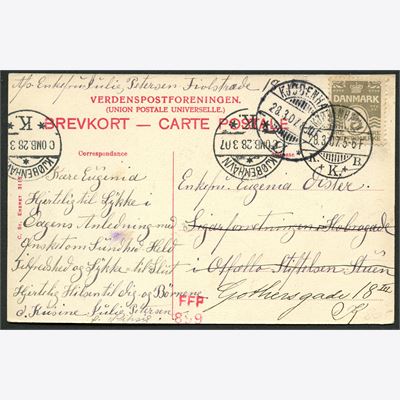 Enkefru Julie Petersen Fiolstræde 18
VERDENSPOSTFORENINGEN.
(UNION POSTALE UNIVERSELLE.)
BREVKORT — CARTE POSTALE
DANMARK
KJØBENHAVN
K
OMB. 28.3.07
KJØBENHAVN
28.3.07
28.3.07. 5-6 F
K. K. B
KJØBENHAVN
K
OMB. 28.3.07
Correspondance
Kære Eugenia
Hjertelig til Lykke i
Dagens Anledning med
Ønsket om Sundhed Held
Tilfredshed og Lykke til Slut
Hjertelig Hilsen til dig og Børnene
d. Kusine Julie Petersen
Enkefru Eugenia
Cigarforretningen Holbergsgade
i
Gothersgade 18
K
FFP
859